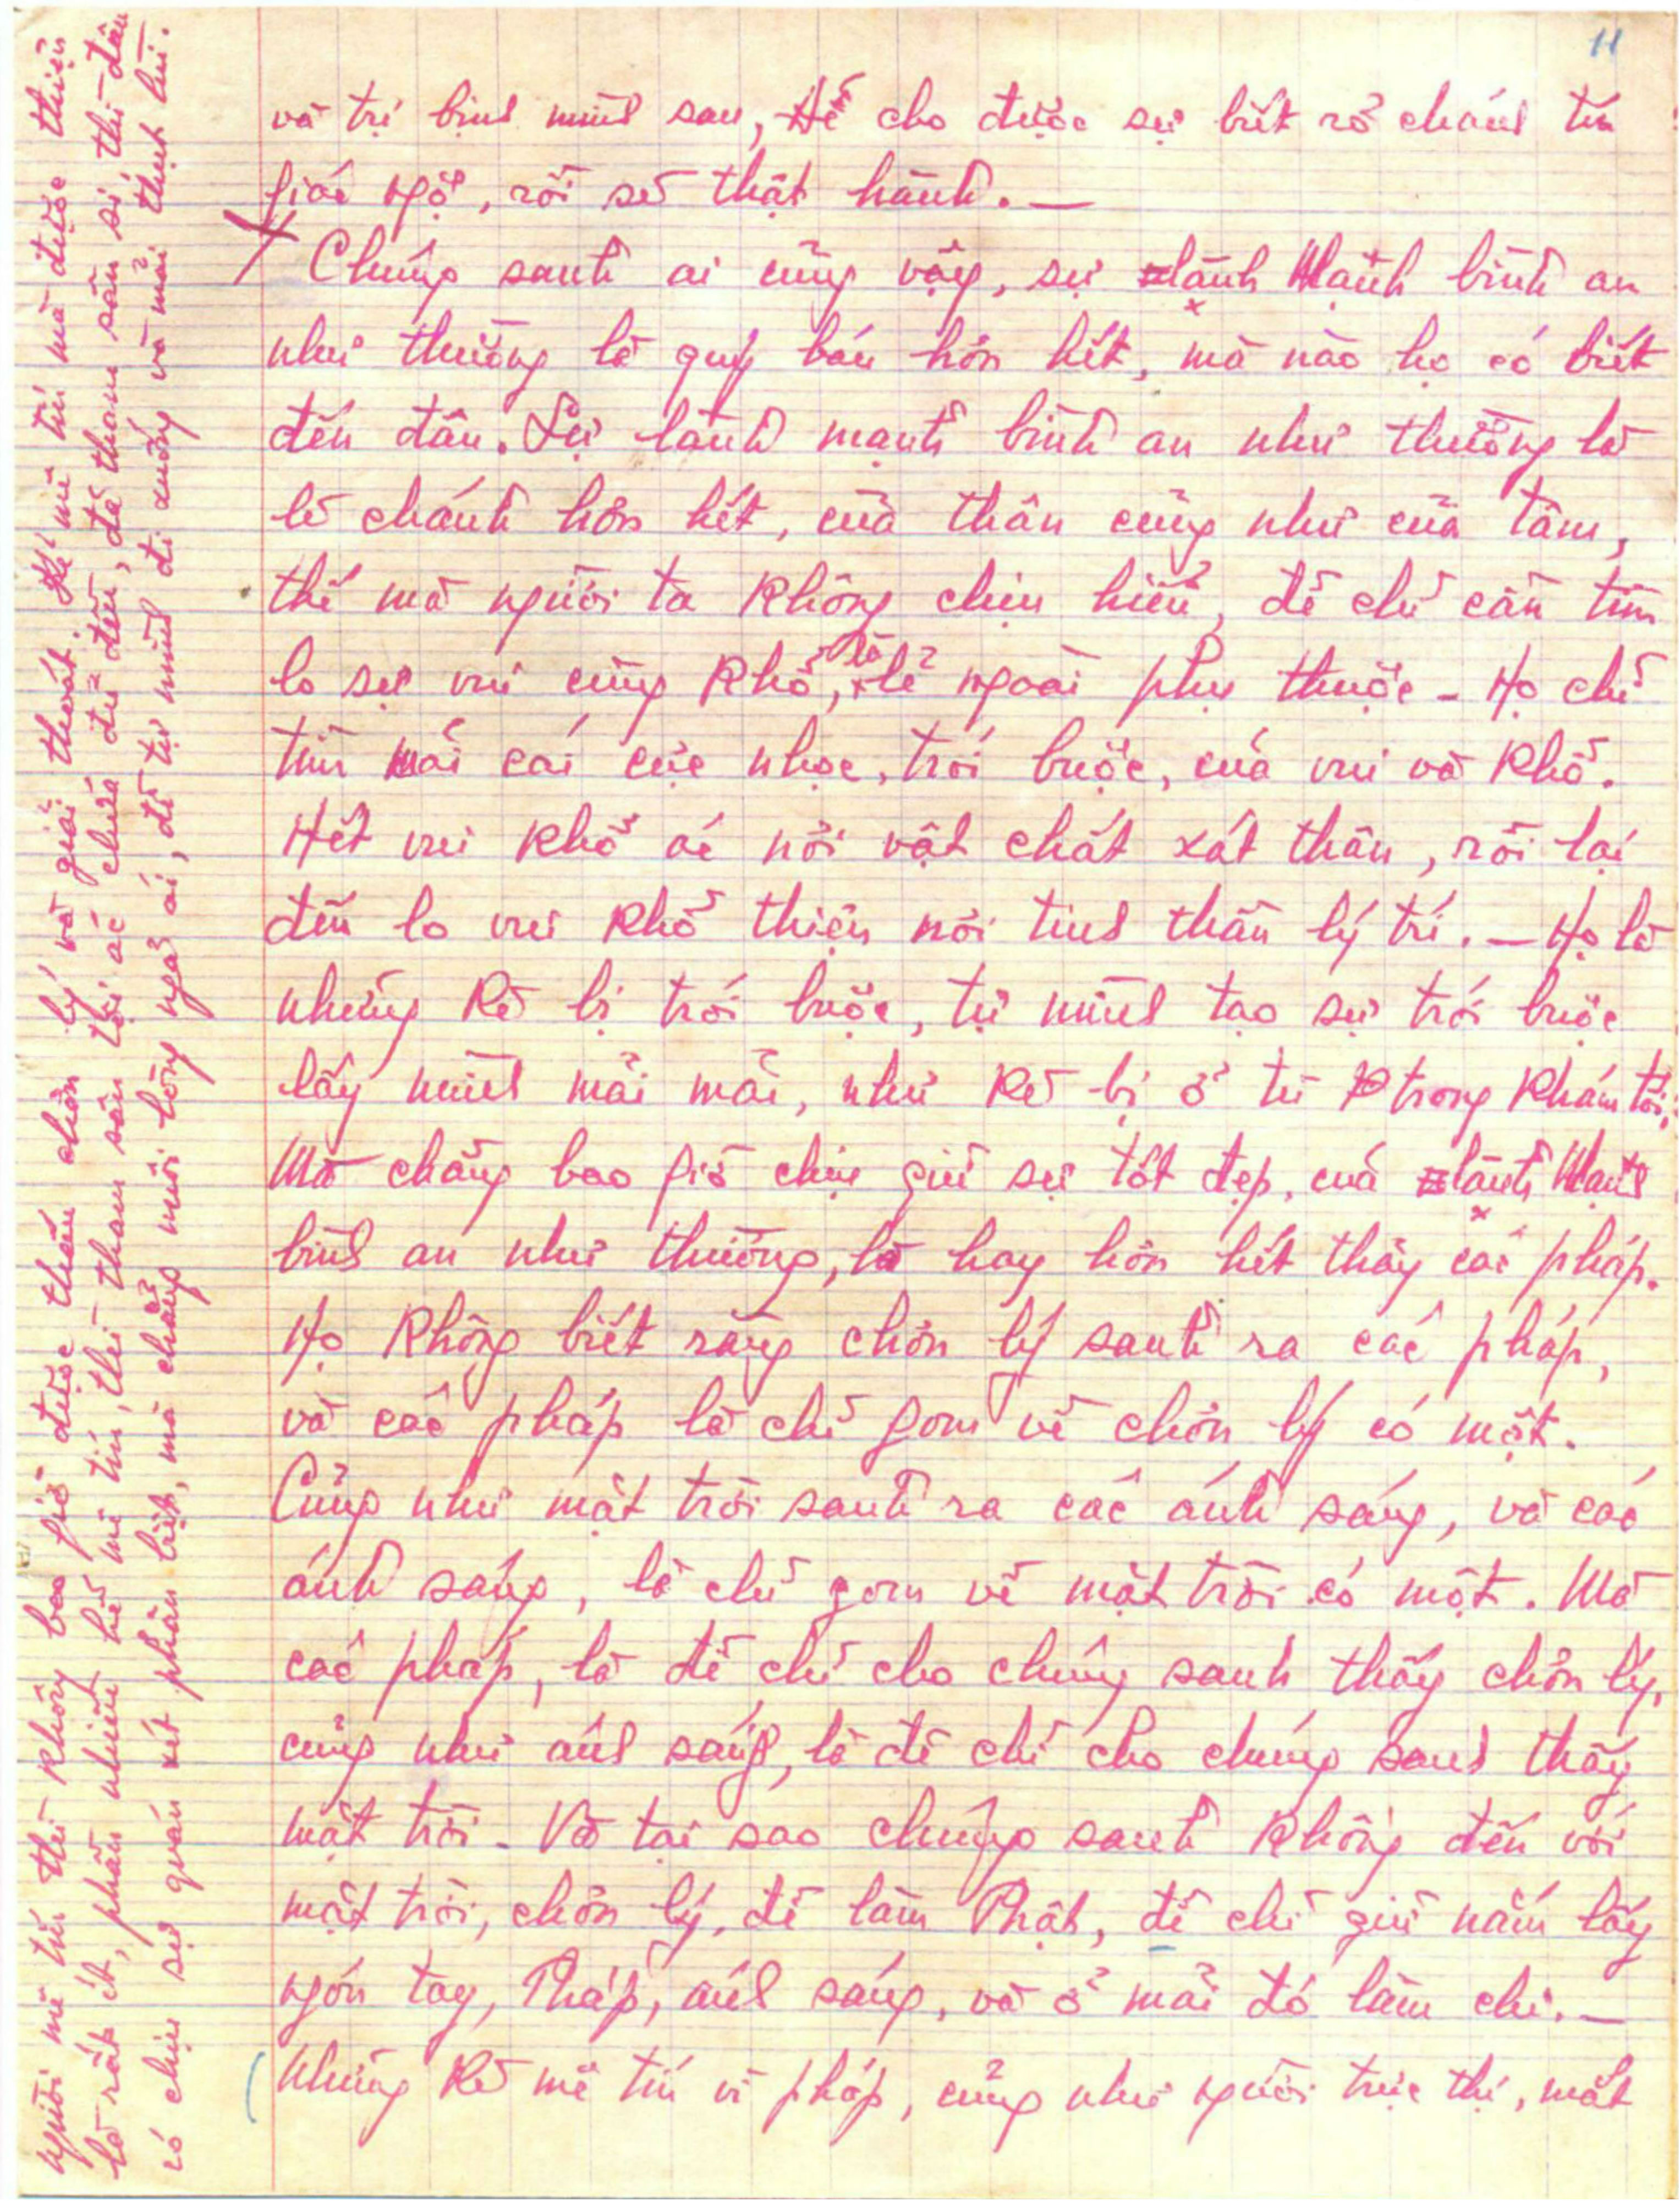 11
và trị bịnh mình sau, để cho được sự biết rõ chánh tín
giác ngộ, rồi sẽ thật hành. —
Chúng sanh ai cũng vậy, sự lành mạnh bình an
như thường là quý báu hơn hết, mà nào họ có biết
đến đâu. Sự lành mạnh bình an như thường là
lẽ chánh hơn hết, của thân cũng như của tâm,
thế mà người ta không chịu hiểu, để chỉ cần tìm
lo sự vui cùng khổ, là lẽ ngoài phụ thuộc - Họ chỉ
tìm mãi cái cực nhọc, trói buộc, của vui và khổ.
Hết vui khổ ác nơi vật chất xát thân, rồi lại
đến lo vui khổ thiện nơi tinh thần lý trí. — Họ là
những kẻ bị trói buộc, tự mình tạo sự trói buộc
lấy mình mãi mãi, như kẻ bị ở tù trong khám tối.
Mà chẳng bao giờ chịu giữ sự tốt đẹp, của lành mạnh
bình an như thường, là hay hơn hết thảy các pháp.
Họ không biết rằng chơn lý sanh ra các pháp,
và các pháp là chỉ gom về chơn lý có một.
Cũng như mặt trời sanh ra các ánh sáng, và các
ánh sáng, là chỉ gom về mặt trời có một. Mà
các pháp, là để chỉ cho chúng sanh thấy chơn lý,
cũng như ánh sáng, là để chỉ cho chúng sanh thấy
mặt trời - Vã tại sao chúng sanh không đến với
mặt trời, chơn lý, để làm Phật, để chỉ giữ nắm lấy
ngón tay, Pháp, ánh sáng, và ở mãi đó làm chi. —
Những kẻ mê tín vì pháp, cũng như người trực thị, mắt
người mê tín thì không bao giờ được thấu chơn lý và giải thoát. Kẻ mê tín mà được thiện
là rất ít, phần nhiều hễ mê tín, thì tham sân tội ác chưa đủ đến, để tham sân si, thì đâu
có chịu sự quán xét phân biệt, mà chẳng mùi lòng ngã ái, để tự mình đi xuống và mãi thụt lùi.